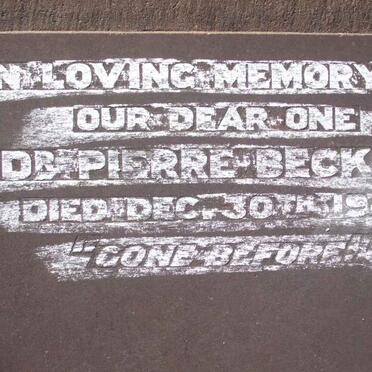 N LOVING MEMORY
OUR DEAR ONE
PIERRE BECK
DIED DEC. 30TH 19
"GONE BEFORE"